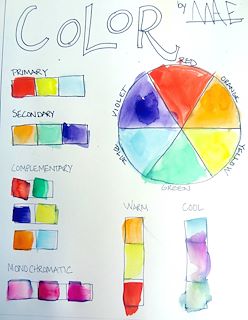 COLOR
by MAE
PRIMARY
SECONDARY
COMPLEMENTARY
MONOCHROMATIC
RED
ORANGE
YELLOW
GREEN
BLUE
VIOLET
WARM
COOL